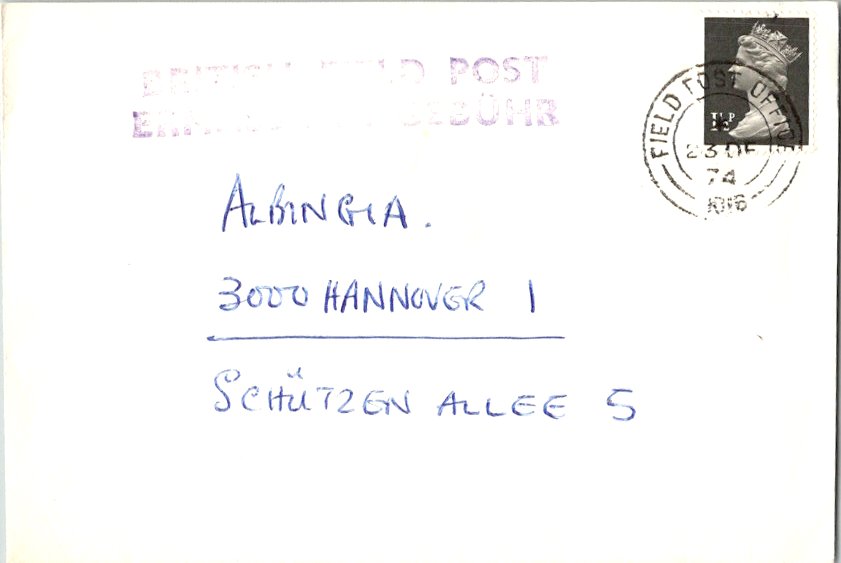 BRITISH FIELD POST
ERMÄSSIGTE GEBÜHR
1½P
FIELD POST OFFICE
23 DE
74
ALBINGIA.
3000 HANNOVER 1
SCHÜTZEN ALLEE 5